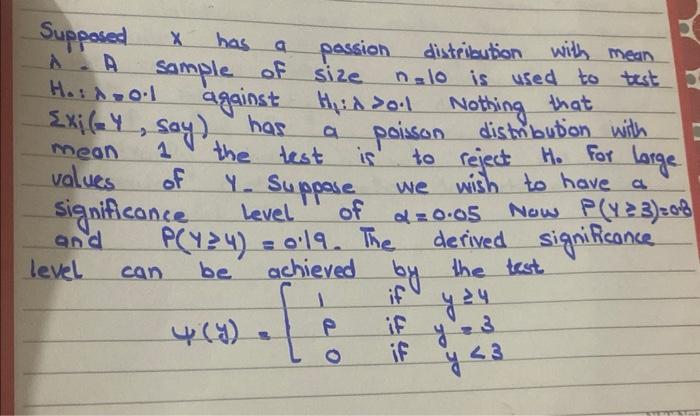 Supposed x has a passion distribution with mean
λ - A sample of size n=10 is used to test
H₀: λ=0.1 against H₁: λ>0.1 Nothing that
Σxi(=Y, say) has a poisson distribution with
mean 1 the test is to reject H₀ For large
values of Y- Suppose we wish to have a
significance level of α=0.05 Now P(Y≥3)=0.8
and P(Y≥4) = 0.19. The derived significance
level can be achieved by the test
1 if y≥4
ψ(y) = P if y=3
0 if y<3